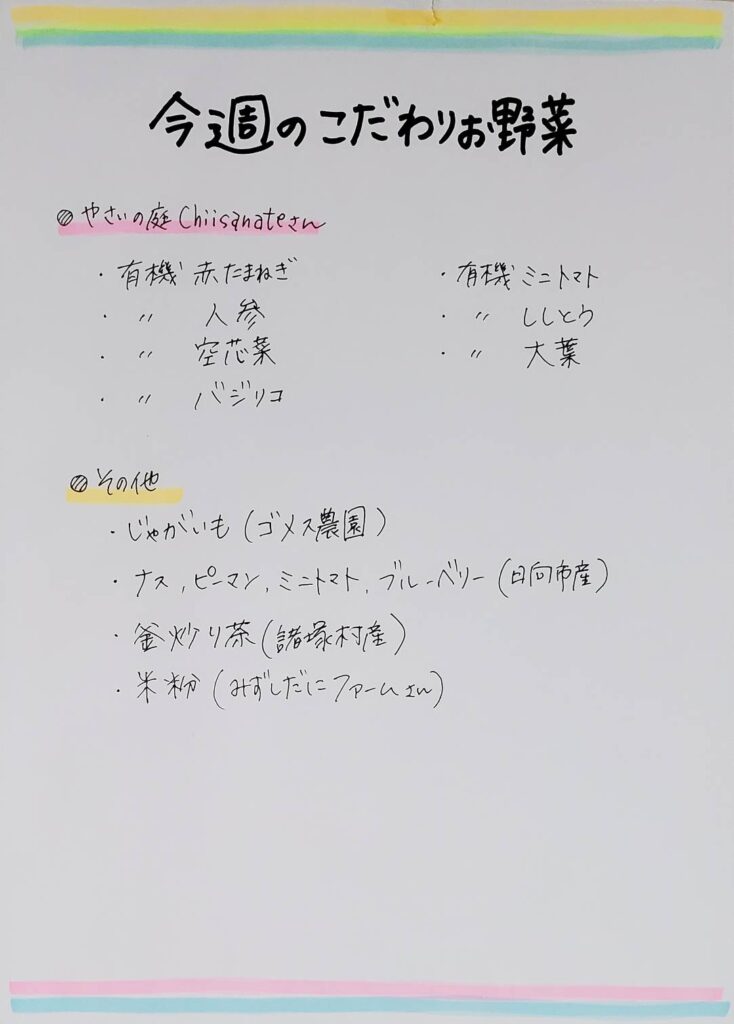 今週のこだわりお野菜
やさいの庭 Chiisanateさん
・有機 赤たまねぎ
・〃 人参
・〃 空芯菜
・〃 バジリコ
・有機 ミニトマト
・〃 ししとう
・〃 大葉
その他
・じゃがいも (ゴメス農園)
・ナス, ピーマン, ミニトマト, ブルーベリー (日向市産)
・釜炒り茶 (諸塚村産)
・米粉 (みずしだにファームさん)